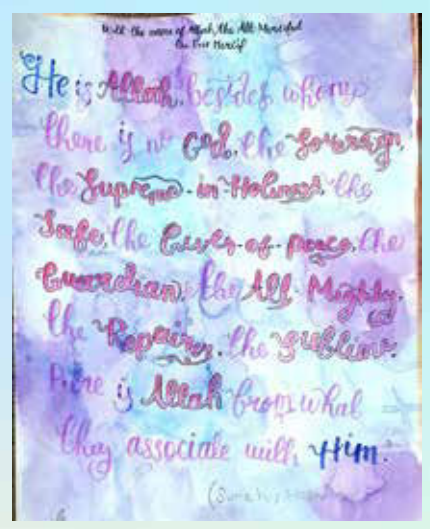 With the name of Allah, the All-Merciful
the Ever Merciful
He is Allah, besides whom
there is no God, the Sovereign,
the Supreme-in-Holiness, the
Safe, the Giver-of-peace, the
Guardian, the All-Mighty,
the Repairer, the Sublime.
Pure is Allah from what
they associate with Him.